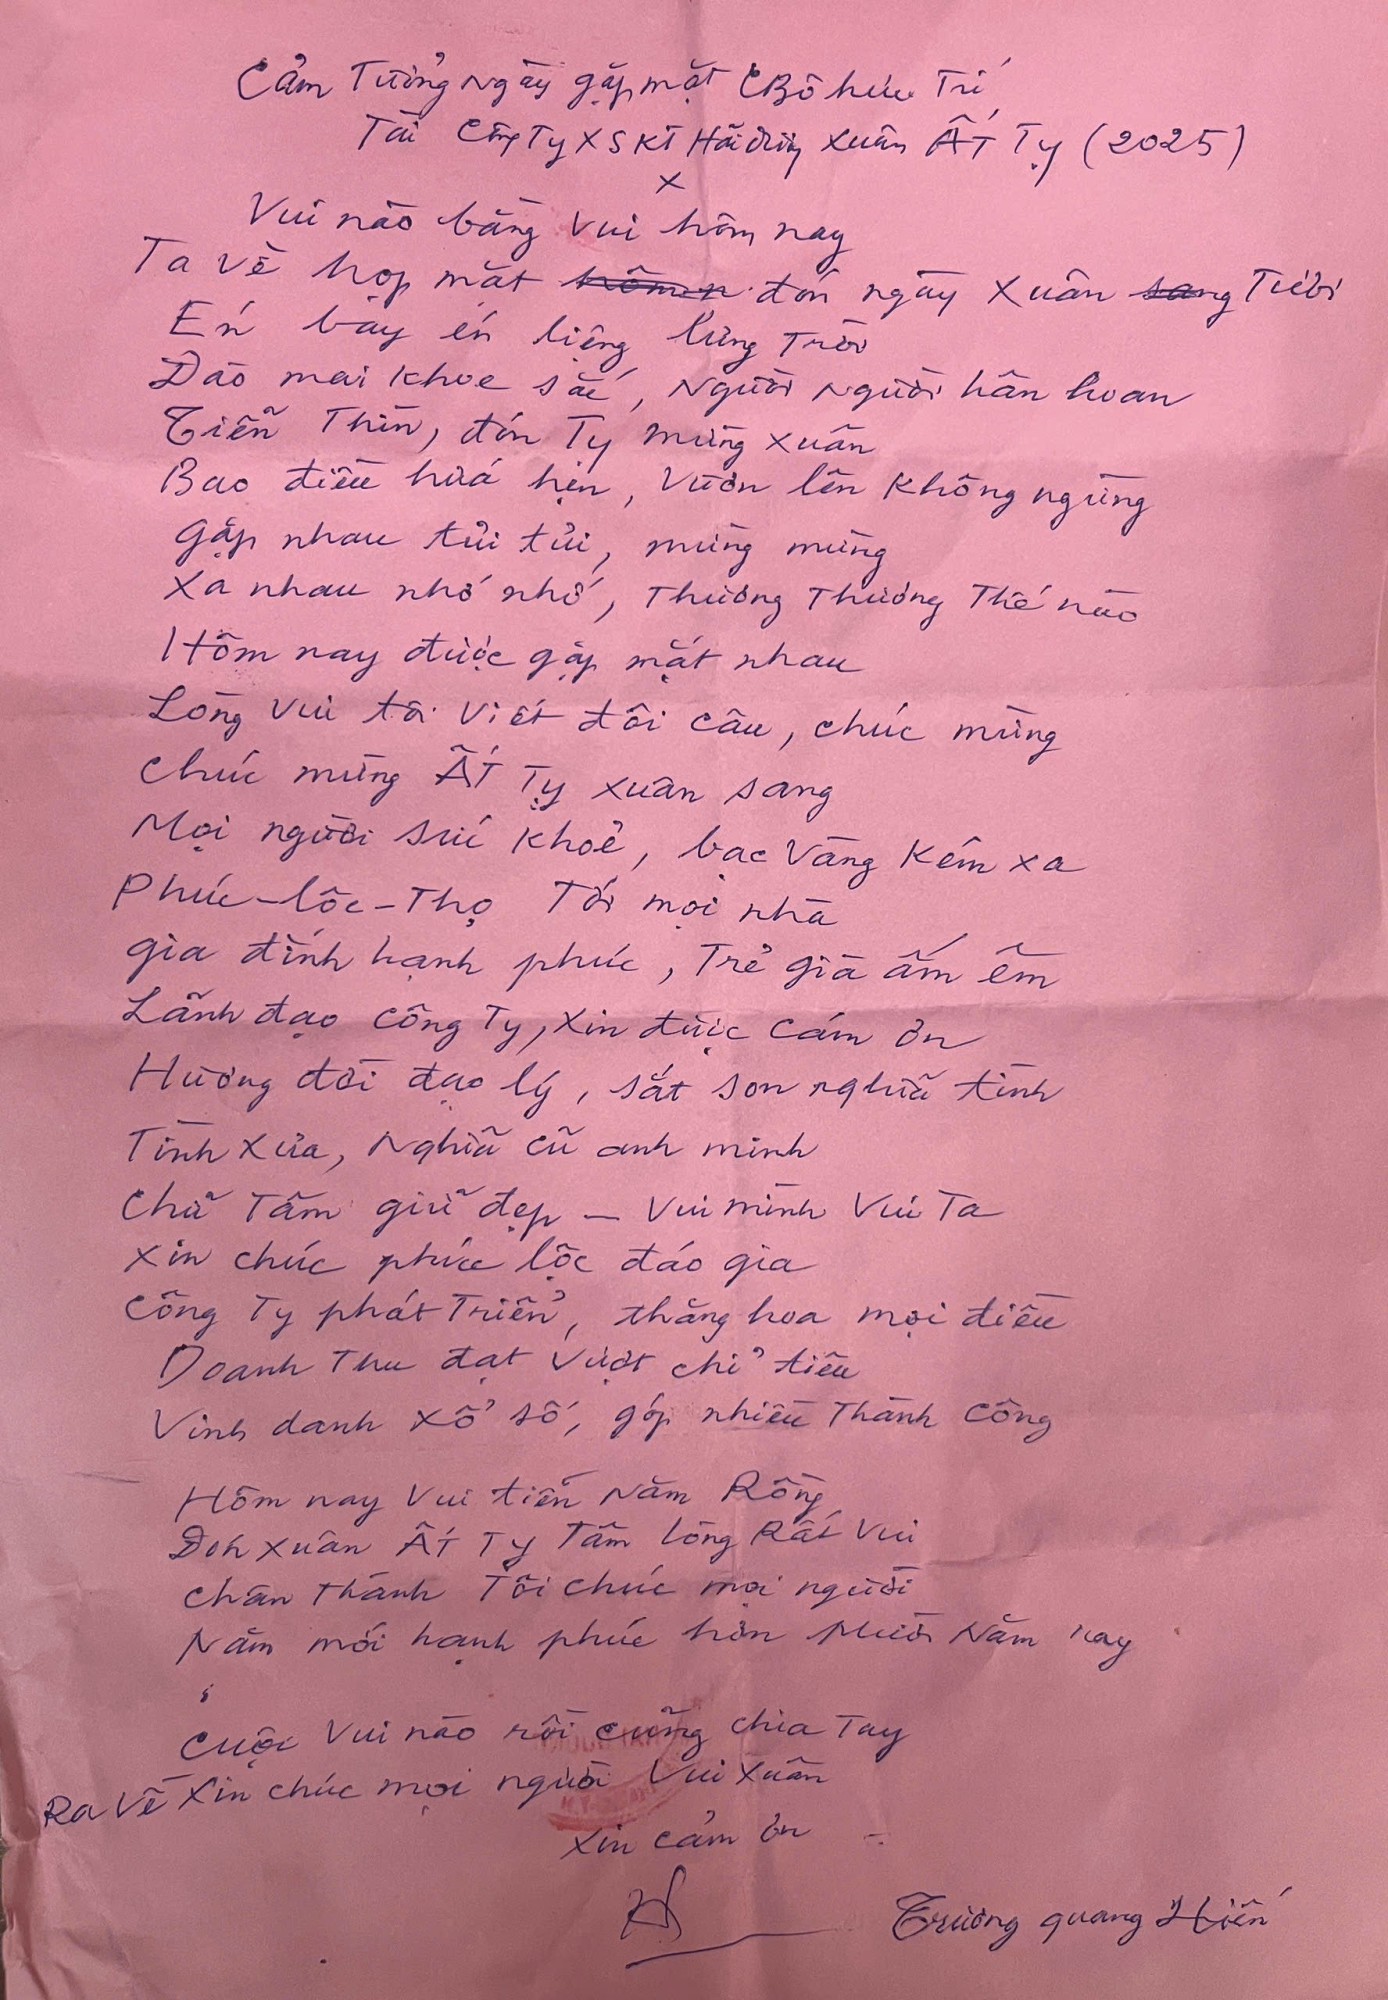 Cảm Tưởng Ngày gặp mặt CBộ hưu Trí
Tại Công Ty XSKT Hải dương Xuân ẤT Tỵ (2025)
x
Vui nào bằng vui hôm nay
Ta về họp mặt đón ngày Xuân Tươi
Én bay én liệng lưng Trời
Đào mai khoe sắc, Người Người hân hoan
Tiễn Thìn, đón Tỵ mừng xuân
Bao điều hứa hẹn, Vươn lên không ngừng
Gặp nhau tủi tủi, mừng mừng
Xa nhau nhớ nhớ, Thương Thương Thế nào
Hôm nay được gặp mặt nhau
Lòng vui tôi viết đôi câu, chúc mừng
Chúc mừng ẤT Tỵ xuân sang
Mọi người sức khoẻ, bạc Vàng Kém xa
Phúc-lộc-Thọ Tới mọi nhà
gia đình hạnh phúc, Trẻ già ấm êm
Lãnh đạo Công Ty, Xin được cám ơn
Hương đời đạo lý, sắt son nghĩa tình
Tình xưa, Nghĩa cũ anh minh
Chữ Tâm giữ đẹp - Vui mình Vui Ta
Xin chúc phúc lộc đáo gia
Công Ty phát Triển, thăng hoa mọi điều
Doanh Thu đạt vượt chỉ tiêu
Vinh danh xổ số, góp nhiều Thành Công
Hôm nay Vui tiễn Năm Rồng
Đón xuân ẤT Tỵ Tấm lòng Rất Vui
Chân Thành Tôi chúc mọi người
Năm mới hạnh phúc hơn Mười Năm nay
Cuộc Vui nào rồi cũng chia Tay
Ra Về Xin chúc mọi người Vui Xuân
Xin cảm ơn
Trương quang Hiến